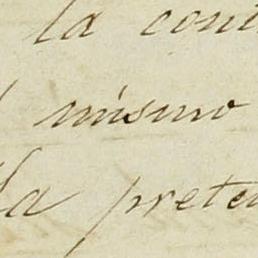 la cont
mismo
la prete